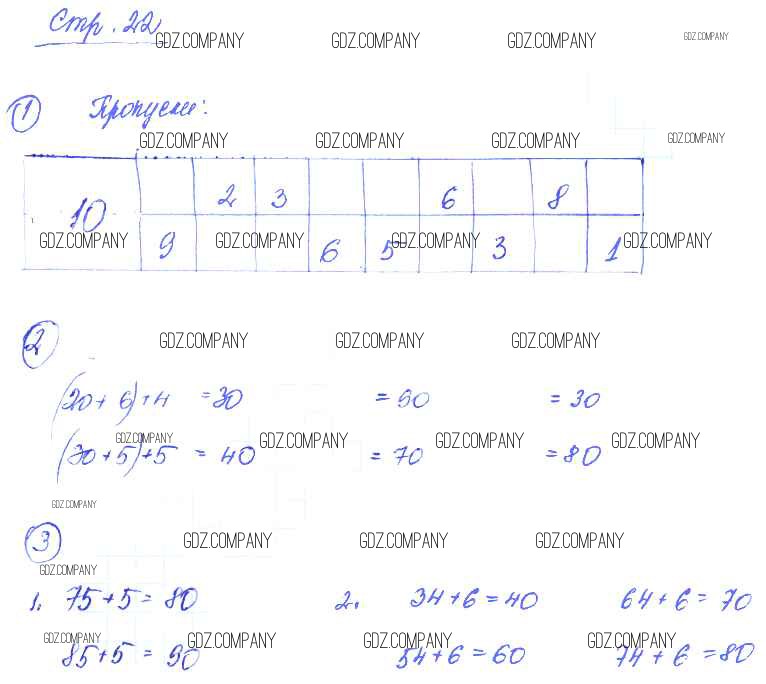 Стр. 22
GDZ.COMPANY GDZ.COMPANY GDZ.COMPANY GDZ.COMPANY
1 Пропуски:
GDZ.COMPANY GDZ.COMPANY GDZ.COMPANY GDZ.COMPANY
10 2 3 6 8
9 6 5 3 1
GDZ.COMPANY GDZ.COMPANY GDZ.COMPANY GDZ.COMPANY
2
GDZ.COMPANY GDZ.COMPANY GDZ.COMPANY
(20 + 6) + 4 = 30 = 90 = 30
(30 + 5) + 5 = 40 = 70 = 80
GDZ.COMPANY GDZ.COMPANY GDZ.COMPANY GDZ.COMPANY
GDZ.COMPANY
3
GDZ.COMPANY GDZ.COMPANY GDZ.COMPANY
GDZ.COMPANY
1. 75 + 5 = 80 2. 34 + 6 = 40 64 + 6 = 70
GDZ.COMPANY GDZ.COMPANY GDZ.COMPANY GDZ.COMPANY
85 + 5 = 90 54 + 6 = 60 74 + 6 = 80